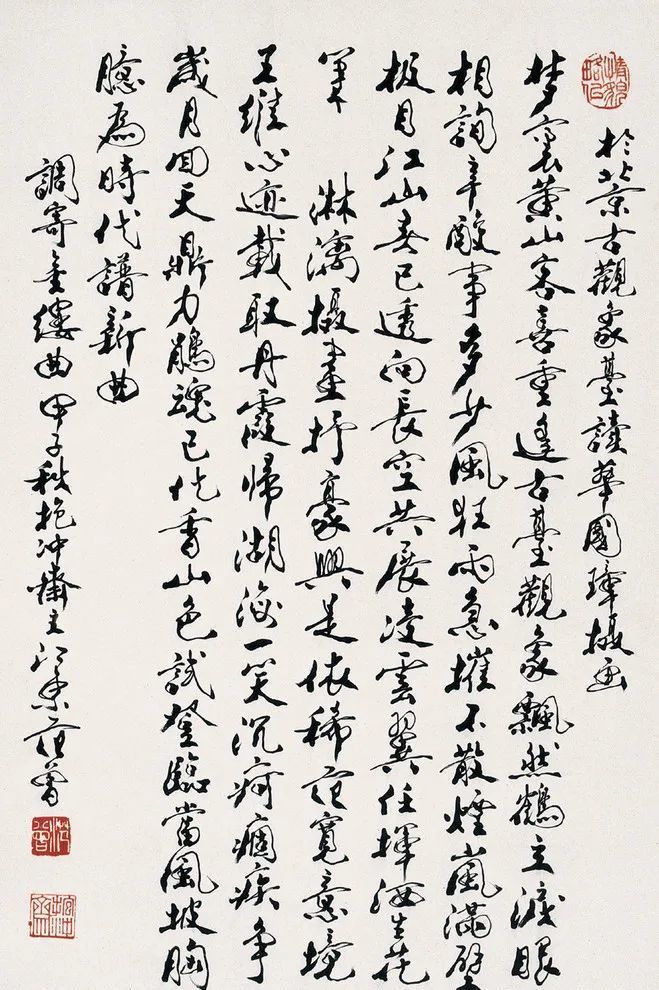 於北京古觀象臺讀華國璋攝画
梦裏黄山客喜重逢古臺觀象飄然鶴立淚眼
相詢辛酸事多少風狂雨急摧不散煙嵐滿壁
极目江山春已透向長空共展凌雲翼任揮洒生花
筆 淋漓攝畫抒豪興是依稀范寬意境
王維心迹載取丹霞帰湖海一笑沉疴痼疾争
歲月回天鼎力鵑魂已化香山色試登臨當風披胸
臆為時代譜新曲
調寄金縷曲甲子秋抱冲齋主江東范曾
范曾